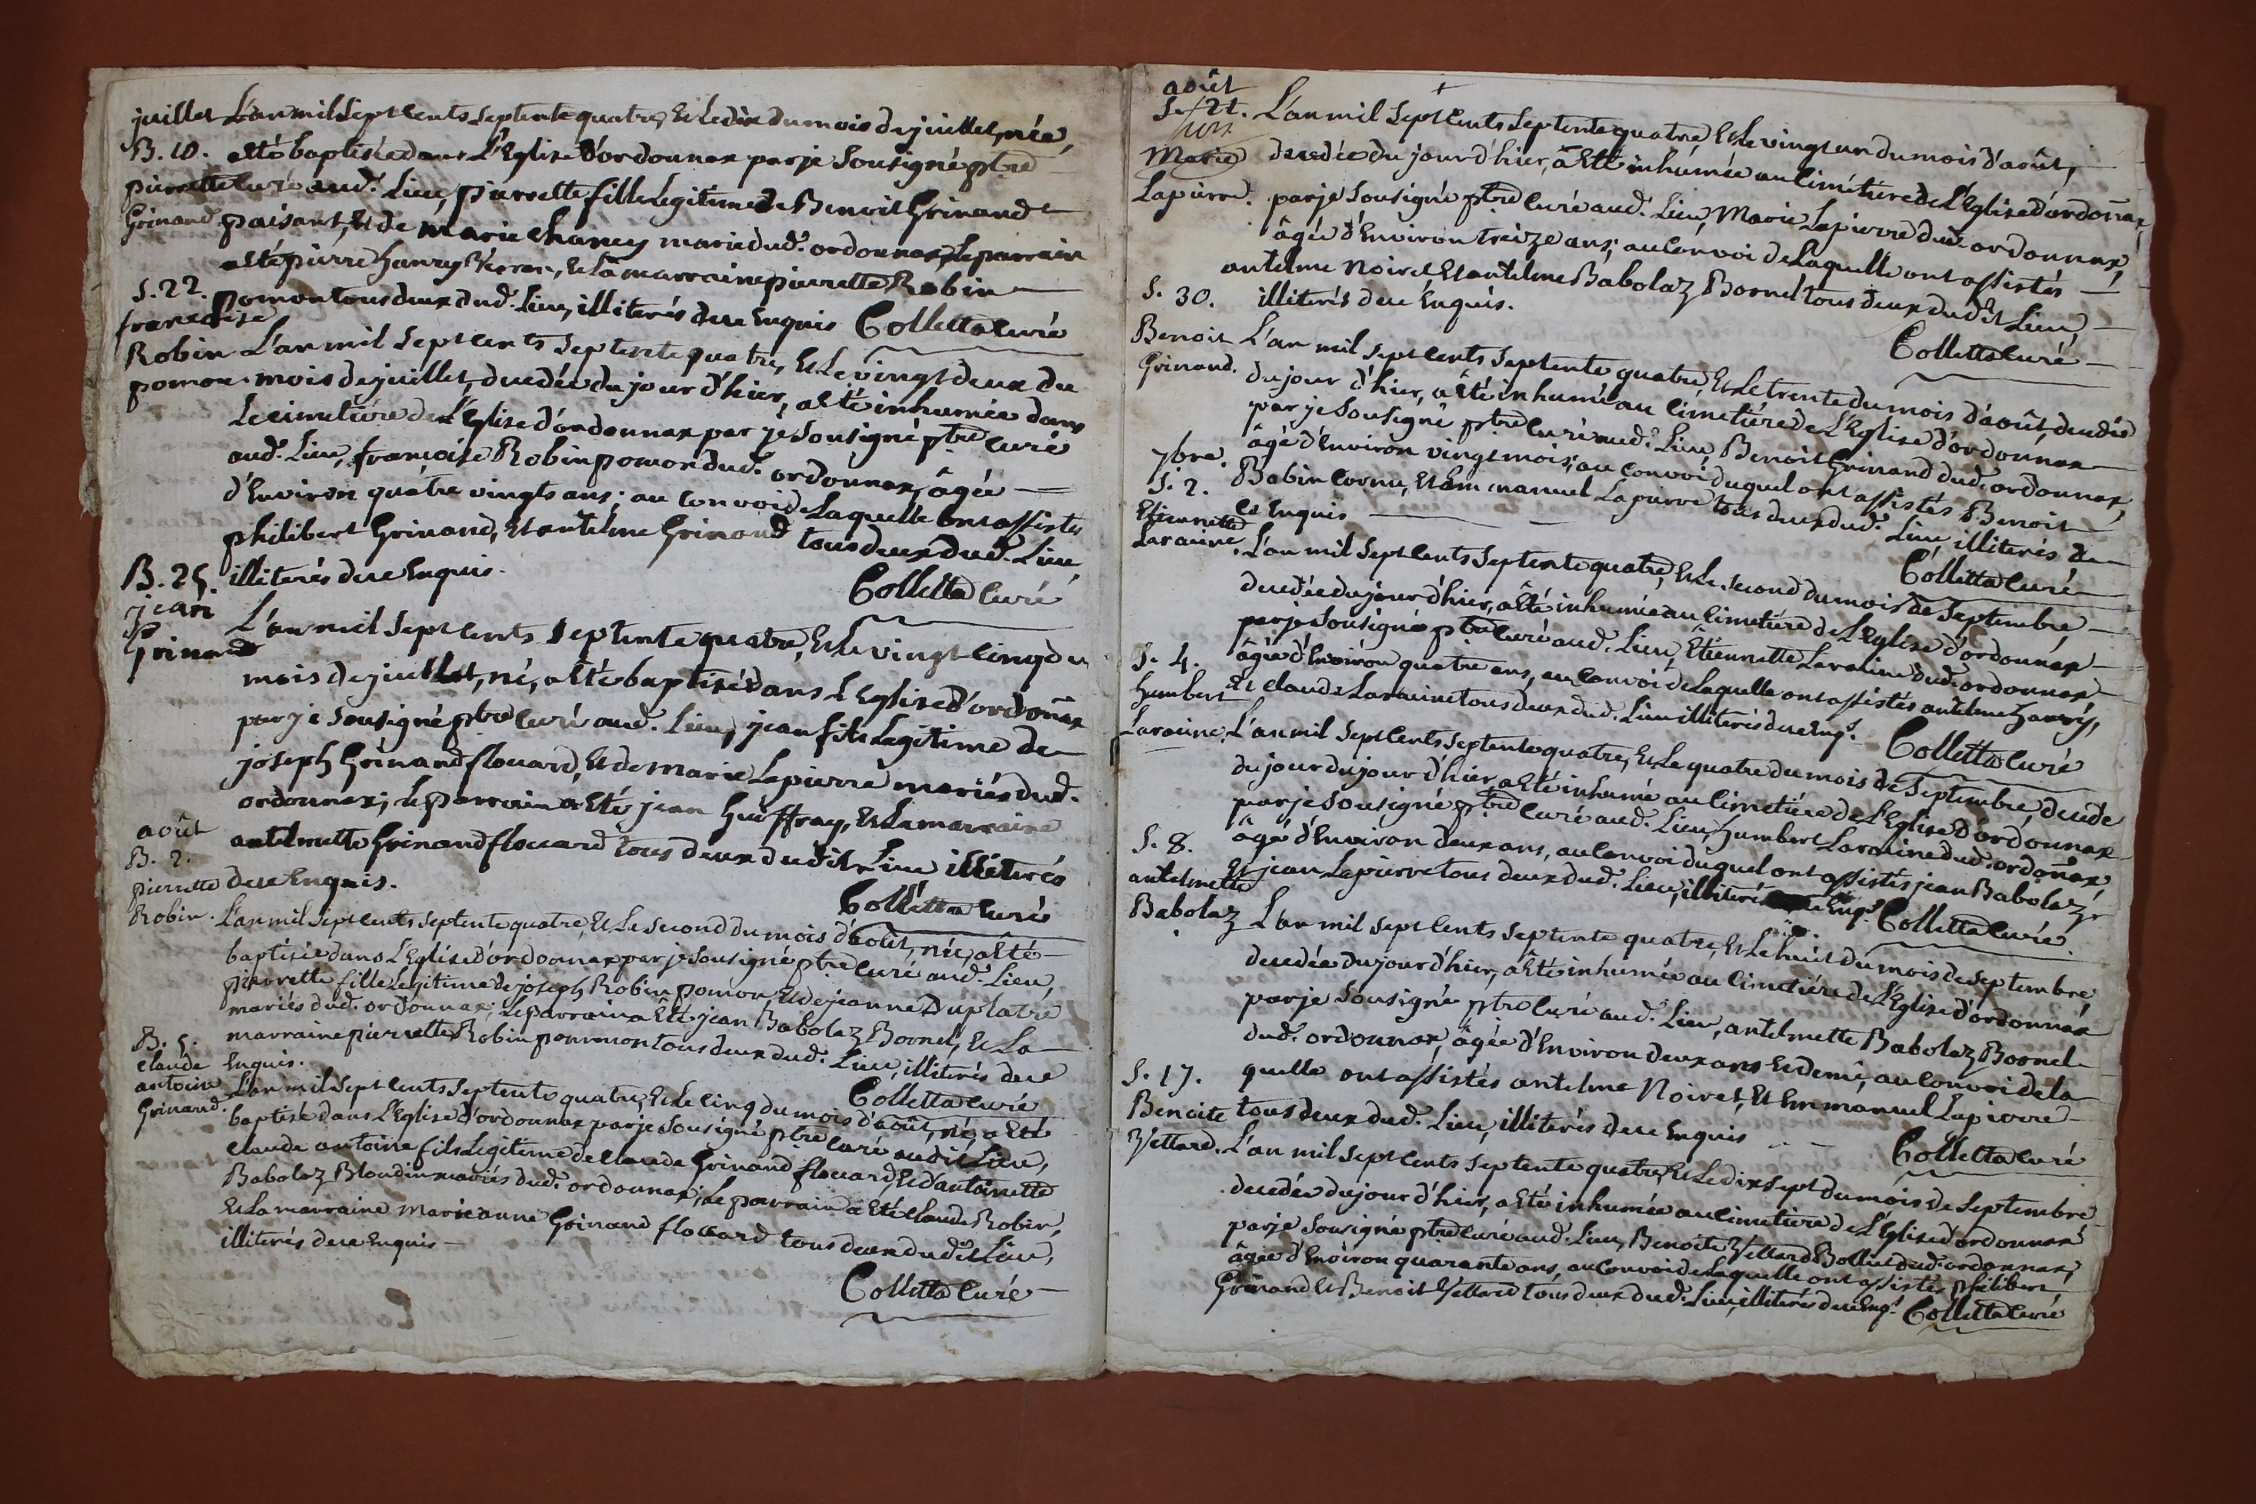 juillet L'an mil Sept Cents Septente quatre, Et Le dix du mois de juillet, née,
B. 10. a Eté baptisée dans L'Eglise d'ordonnax par je Sousigné ptre
pierrette Curé aud.t Lieu, pierrette fille Legitime de Benoit Grinand
Grinand paisant, Et de Marie Chaney mariés dud.t ordonnax, Le parrain
a Eté pierre hanry, Et La marraine pierrette Robin
S. 22. pomon tous deux dud.t Lieu, illiterés de ce Enquis Colletta Curé
françoise
Robin L'an mil Sept Cents Septente quatre, Et Le vingt deux du
pomon. mois de juillet, decedée du jour d'hier, a Eté inhumée dans
Le cimetiére de L'Eglise d'ordonnax par je Sousigné ptre Curé
aud.t Lieu, françoise Robin pomon dud.t ordonnax, âgée
d'Environ quatre vingts ans; au Convoi de Laquelle ont assistés
philibert Grinand, Et antelme Grinand tous deux dud.t Lieu,
illiterés de ce Enquis.
Colletta Curé
B. 25.
jean
Grinand
L'an mil Sept Cents Septente quatre, Et Le vingt Cinq du
mois de juillet, né, a Eté baptisé dans L'Eglise d'ordoñax
par je Sousigné ptre Curé aud.t Lieu, jean fils Legitime de
joseph Grinand flouard, Et de Marie Lapierre mariés dud.t
ordonnax; Le parrain a Eté jean Guiffray, Et La marraine
août antelmette Grinand flouard tous deux dudit Lieu illiterés
B. 2.
pierrette de ce Enquis.
Colletta Curé
Robin. L'an mil Sept Cents Septente quatre, Et Le Second du mois d'août, née, a Eté
baptisée dans L'Eglise d'ordonnax par je Sousigné ptre Curé aud.t Lieu,
pierrette fille Legitime de joseph Robin pomon, Et de jeanne Duplatre
mariés dud.t ordonnax; Le parrain a Eté jean Babolaz Bornet, Et La
marraine pierrette Robin pommon tous deux dud.t Lieu, illiterés de ce
B. 5. Enquis.
Colletta Curé
claude
antoine L'an mil Sept Cents Septente quatre, Et Le Cinq du mois d'août, né, a Eté
Grinand. baptisé dans L'Eglise d'ordonnax par je Sousigné ptre Curé audit Lieu,
Claude antoine fils Legitime de Claude Grinand flouard, Et d'antoinette
Babolaz Blondin mariés dud.t ordonnax; Le parrain a Eté Claude Robin,
Et La marraine Marieanne Grinand flouard tous deux dudit Lieu,
illiterés de ce Enquis
Colletta Curé
août
S. 21. L'an mil Sept Cents Septente quatre, Et Le vingt un du mois d'août,
Marie decedée du jour d'hier, a Eté inhumée au Cimétiére de L'Eglise d'ordoñax
Lapierre. par je Sousigné ptre Curé aud.t Lieu, Marie Lapierre dud.t ordonnax,
âgée d'Environ treize ans; au Convoi de Laquelle ont assistés
antelme Noiret Et antelme Babolaz Bornet tous deux dudit Lieu,
S. 30. illiterés de ce Enquis.
Colletta Curé
Benoit L'an mil Sept Cents Septente quatre, Et Le trente du mois d'août, decedé
Grinand. du jour d'hier, a Eté inhumé au Cimetiére de L'Eglise d'ordonnax
par je Sousigné ptre Curé aud.t Lieu, Benoit Grinand dud.t ordonnax,
âgé d'Environ vingt mois; au Convoi duquel ont assistés Benoit
7bre. Babin Cornu, Et Emmanuel Lapierre tous deux dud.t Lieu illiterés de
S. 2. Ce Enquis
Colletta Curé
Etiennette
Laraine. L'an mil Sept Cents Septente quatre, Et Le Second du mois de Septembre
decedée du jour d'hier, a Eté inhumée au Cimetiére de L'Eglise d'ordonnax
par je Sousigné ptre Curé aud.t Lieu, Etiennette Laraine dud.t ordonnax
S. 4. âgée d'Environ quatre ans, au Convoi de Laquelle ont assistés antelme hanry,
humbert Et Claude Laraine tous deux dud.t Lieu illiterés de ce Enq.s Colletta Curé
Laraine. L'an mil Sept Cents Septente quatre, Et Le quatre du mois de Septembre, decede
du jour du jour d'hier, a Eté inhumé au Cimetiére de L'Eglise d'ordonnax
par je Sousigné ptre Curé aud.t Lieu, humbert Laraine dud.t ordoñax,
S. 8. âgé d'Environ deux ans, au Convoi duquel ont assistés jean Babolaz,
Et jean Lapierre tous deux dud.t Lieu, illiterés Enq.s Colletta Curé
antelmette
Babolaz L'an mil Sept Cents Septente quatre, Et Le huit du mois de Septembre
decedée du jour d'hier, a Eté inhumée au Cimetiére de L'Eglise d'ordonnax
par je Sousigné ptre Curé aud.t Lieu, antelmette Babolaz Bornet
dud.t ordonnax, âgée d'Environ deux ans Et demi; au Convoi de la
S. 17. quelle ont assistés antelme Noiret, Et Emmanuel Lapierre
Benoite tous deux dud.t Lieu, illiterés de ce Enquis Colletta Curé
Vettard. L'an mil Sept Cents Septente quatre, Et Le dix Sept du mois de Septembre
decedée du jour d'hier, a Eté inhumée au Cimetiére de L'Eglise d'ordonnax
par je Sousigné ptre Curé aud.t Lieu, Benoite Vettard Bolliet dud.t ordonnax,
âgée d'Environ quarante ans, au Convoi de Laquelle ont assistés philibert
Grinand Et Benoit Vettard tous deux dud.t Lieu, illiterés de ce Enq.s Colletta Curé